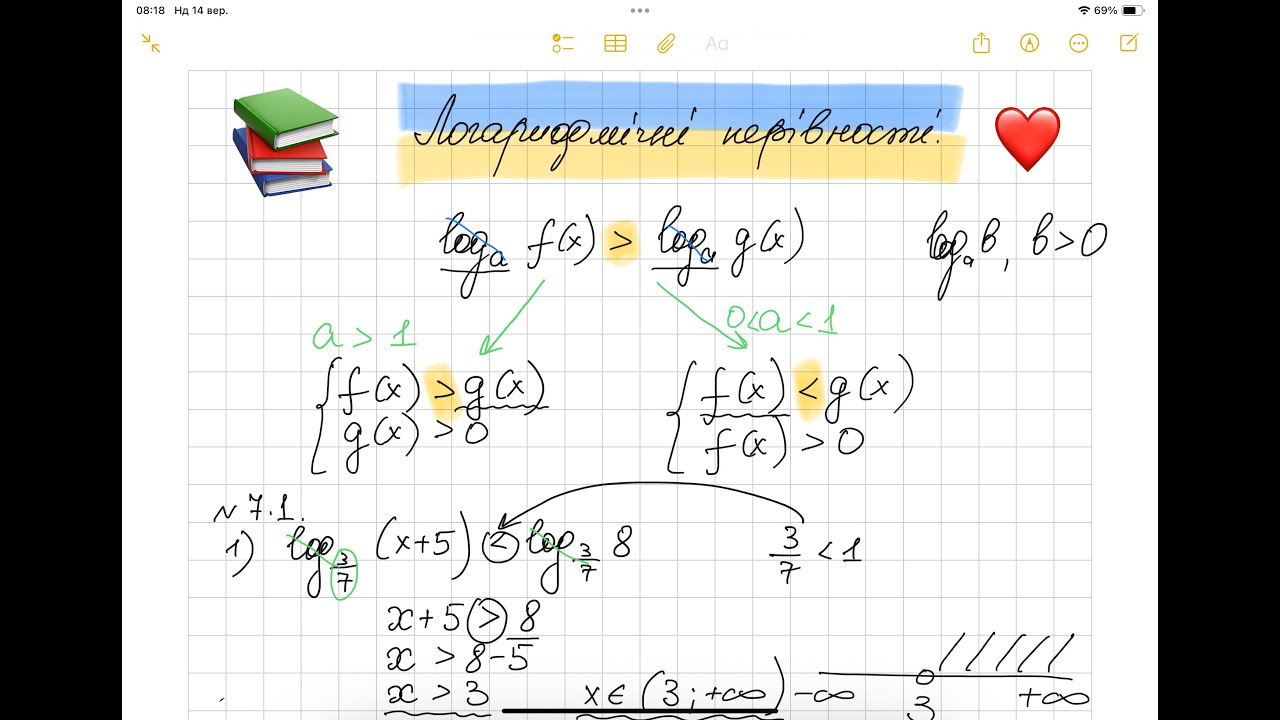 08:18 Нд 14 вер. 69%
Aa
Логаридомічні нерівності.
logₐ f(x) > logₐ g(x) logₐ b, b>0
a > 1 0<a<1
f(x) > g(x) f(x) < g(x)
g(x) > 0 f(x) > 0
N 7.1.
1) log 3/7 (x+5) < log 3/7 8 3/7 < 1
x+5 > 8
x > 8-5
x > 3 x ∈ (3; +∞) -∞ 3 +∞